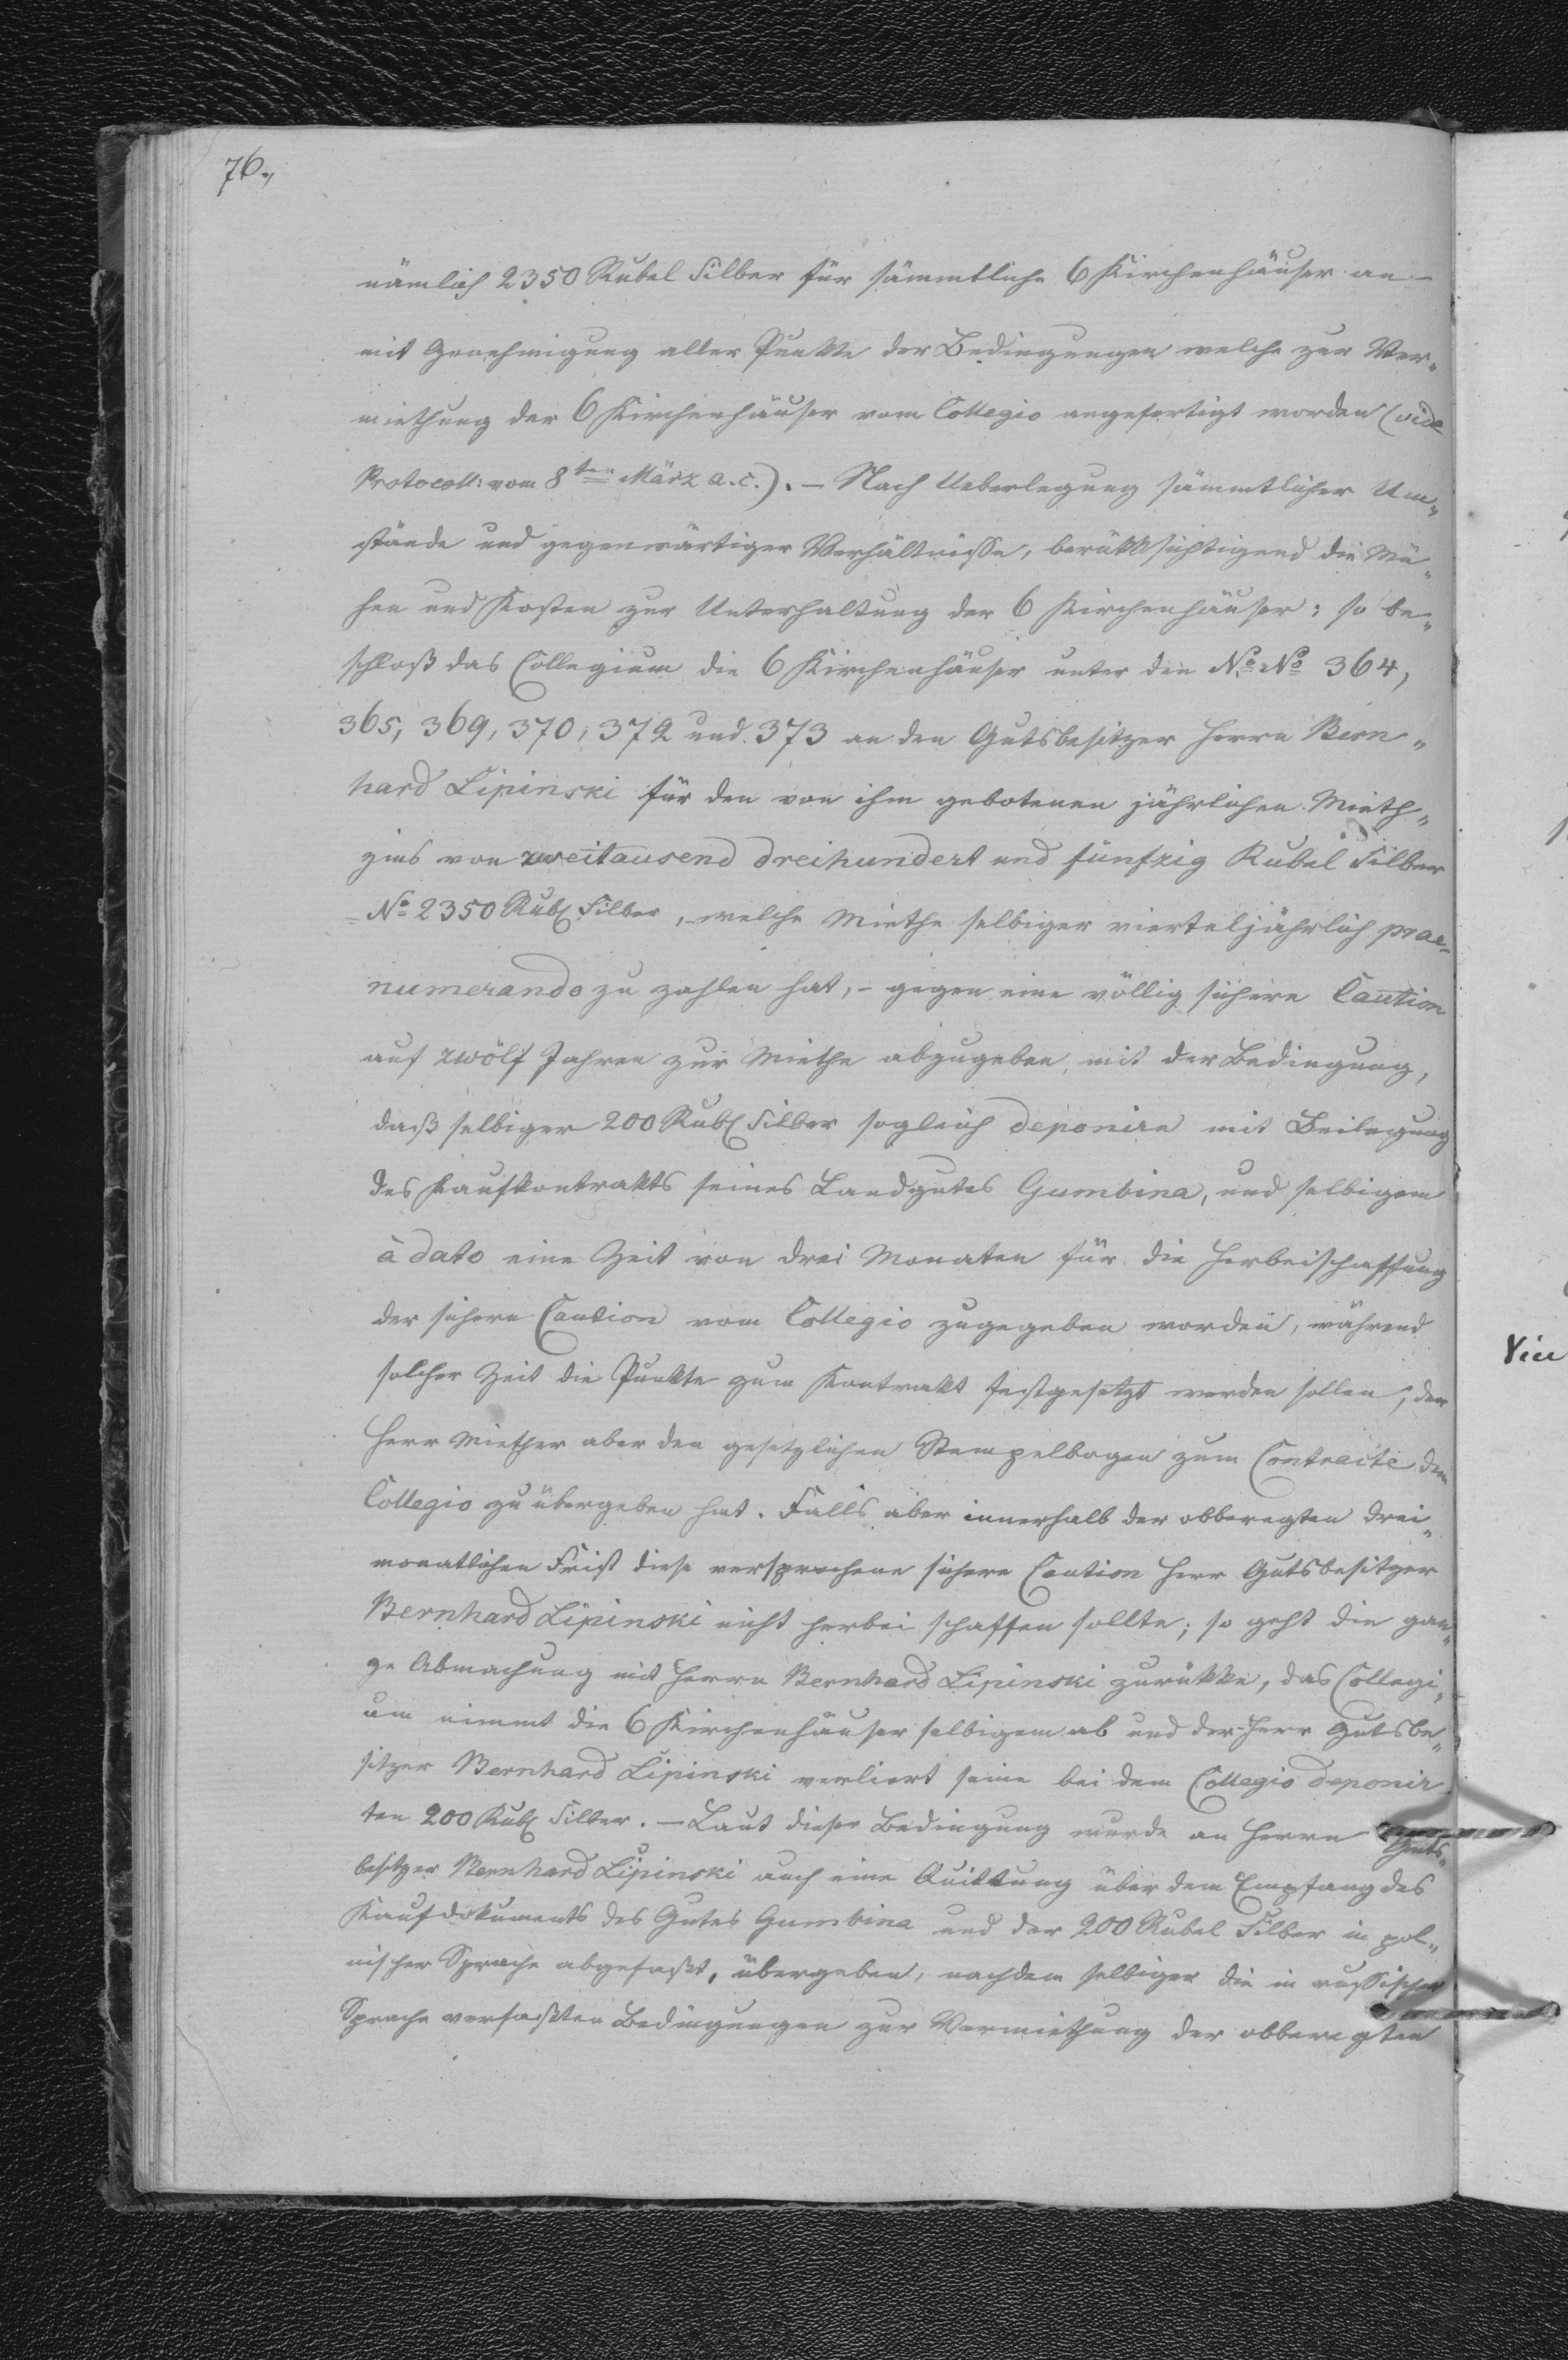 76.,
nämlich 2350 Rubel Silber für sämmtliche 6 Kirchenhäuser an –
mit Genehmigung aller Punkte der Bedingungen welche zur Ver„
miethung der 6 Kirchenhäuser vom Collegio angefertigt worden (vide
Protocoll: vom 8ten März a. c.). – Nach Ueberlegung sämmtlicher Um„
stände und gegenwärtiger Verhältnisse, berükksichtigend die Mü„
hen und Kosten zur Unterhaltung der 6 Kirchenhäuser; so be„
schloß das Collegium die 6 Kirchenhäuser unter den No No 364,
365, 369, 370, 372 und 373 an den Gutsbesitzer Herrn Bern„
hard Lipinski für den von ihm gebotenen jährlichen Mieth„
zins von zweitausend dreihundert und fünfzig Rubel Silber
No 2350 Rub Silber, – welche Miethe selbiger vierteljährlich prae„
numerando zu zahlen hat, – gegen eine völlig sichere Caution
auf zwölf Jahren zur Miethe abzugeben, mit der Bedingung,
daß selbiger 200 Rub Silber sogleich deponire mit Beilegung
des Kaufkontrakts seines Landgutes Gumbina, und selbigem
à dato eine Zeit von drei Monaten für die Herbeischaffung
der sichern Caution vom Collegio zugegeben worden, während
solcher Zeit die Punkte zum Kontrakt festgesetzt werden sollen, der
Herr Miether aber den gesetzlichen Stempelbogen zum Contracte dem
Collegio zu übergeben hat. Falls aber innerhalb der obberegten drei„
monatlichen Frist diese versprochene sichere Caution Herr Gutsbesitzer
Bernhard Lipinski nicht herbei schaffen sollte; so geht die gan„
ze Abmachung mit Herrn Bernhard Lipinski zurükke, das Collegi„
um nimmt die 6 Kirchenhäuser selbigem ab und der Herr Gutsbe„
sitzer Bernhard Lipinski verliert seine bei dem Collegio deponir
ten 200 Rub Silber. – Laut dieser Bedingung wurde an Herrn Guts„
besitzer Bernhard Lipinski auch eine Quittung über dem Empfang des
Kaufdokuments des Gutes Gumbina und der 200 Rubel Silber in pol„
nischer Sprache abgefaßt, übergeben, nachdem selbiger die in russischer
Sprache verfaßten Bedingungen zur Vermiethung der obberegten